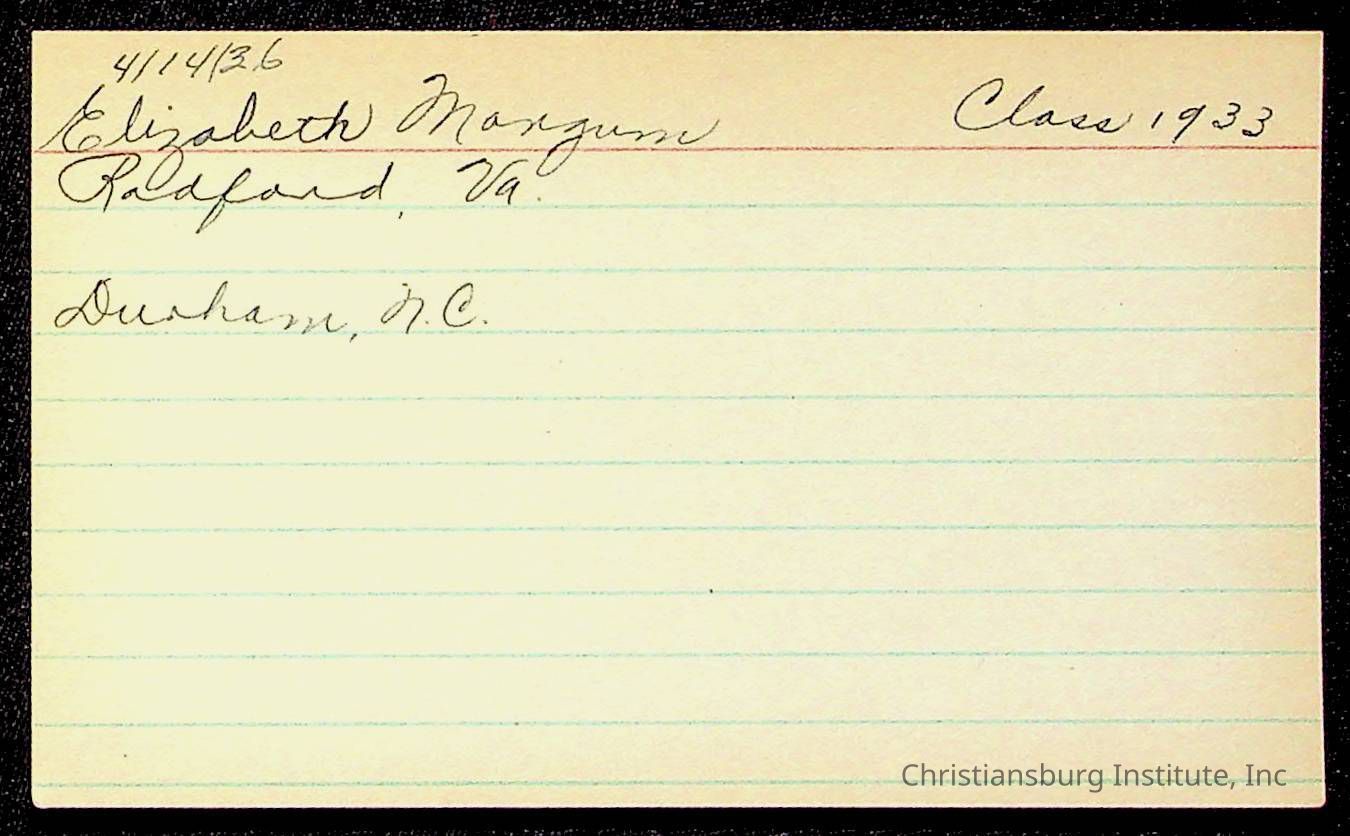 4/14/36
Elizabeth Mangum Class 1933
Radford, Va.
Durham, N.C.
Christiansburg Institute, Inc